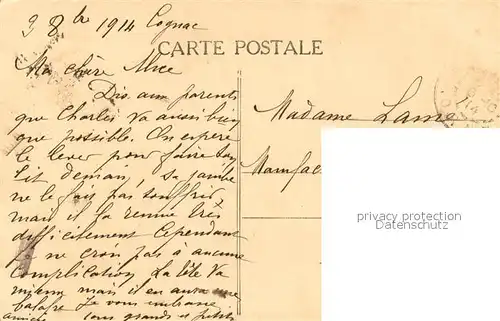 3 8bre 1914 Cognac
CARTE POSTALE
Ma chère Alice
Dis aux parents
que Charles va aussi bien
que possible. On espère
le lever pour faire son
lit demain, sa jambe
ne le fait pas souffrir
mais il la remue très
difficilement Cependant
je ne crois pas à aucune
complication. La tête va
mieux mais il en aura une
balafre Je vous embrasse
tous grands et petits
Madame Lam
Manufac
privacy protection
www.delcampe.net